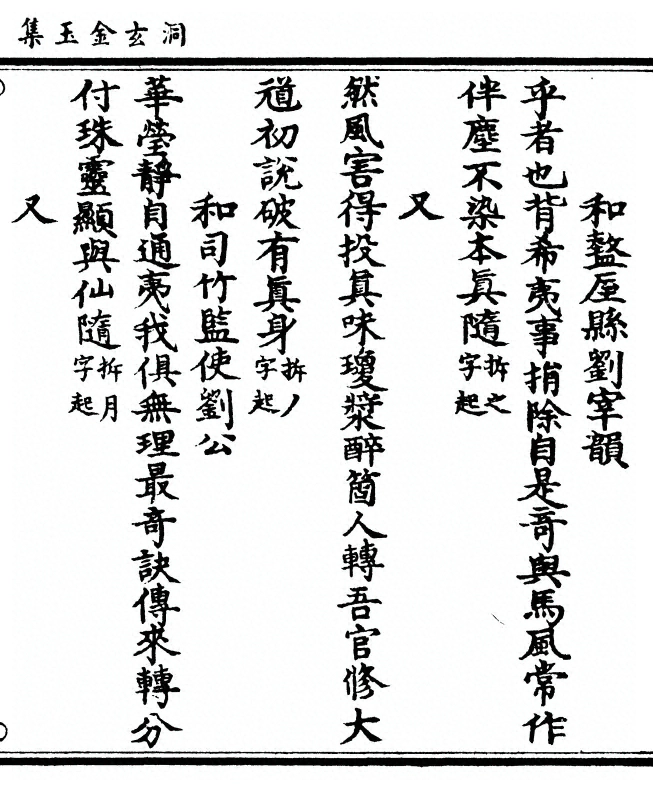 洞玄金玉集
和盩厔縣劉宰韻
乎者也背希夷事捐除自是竒與馬風常作
伴塵不染本眞隨拆之字起
又
然風害得投眞味瓊漿醉箇人轉吾官修大
道初說破有眞身拆丿字起
和司竹監使劉公
華瑩靜自通夷我俱無理最竒訣傳來轉分
付珠靈顯與仙隨拆月字起
又